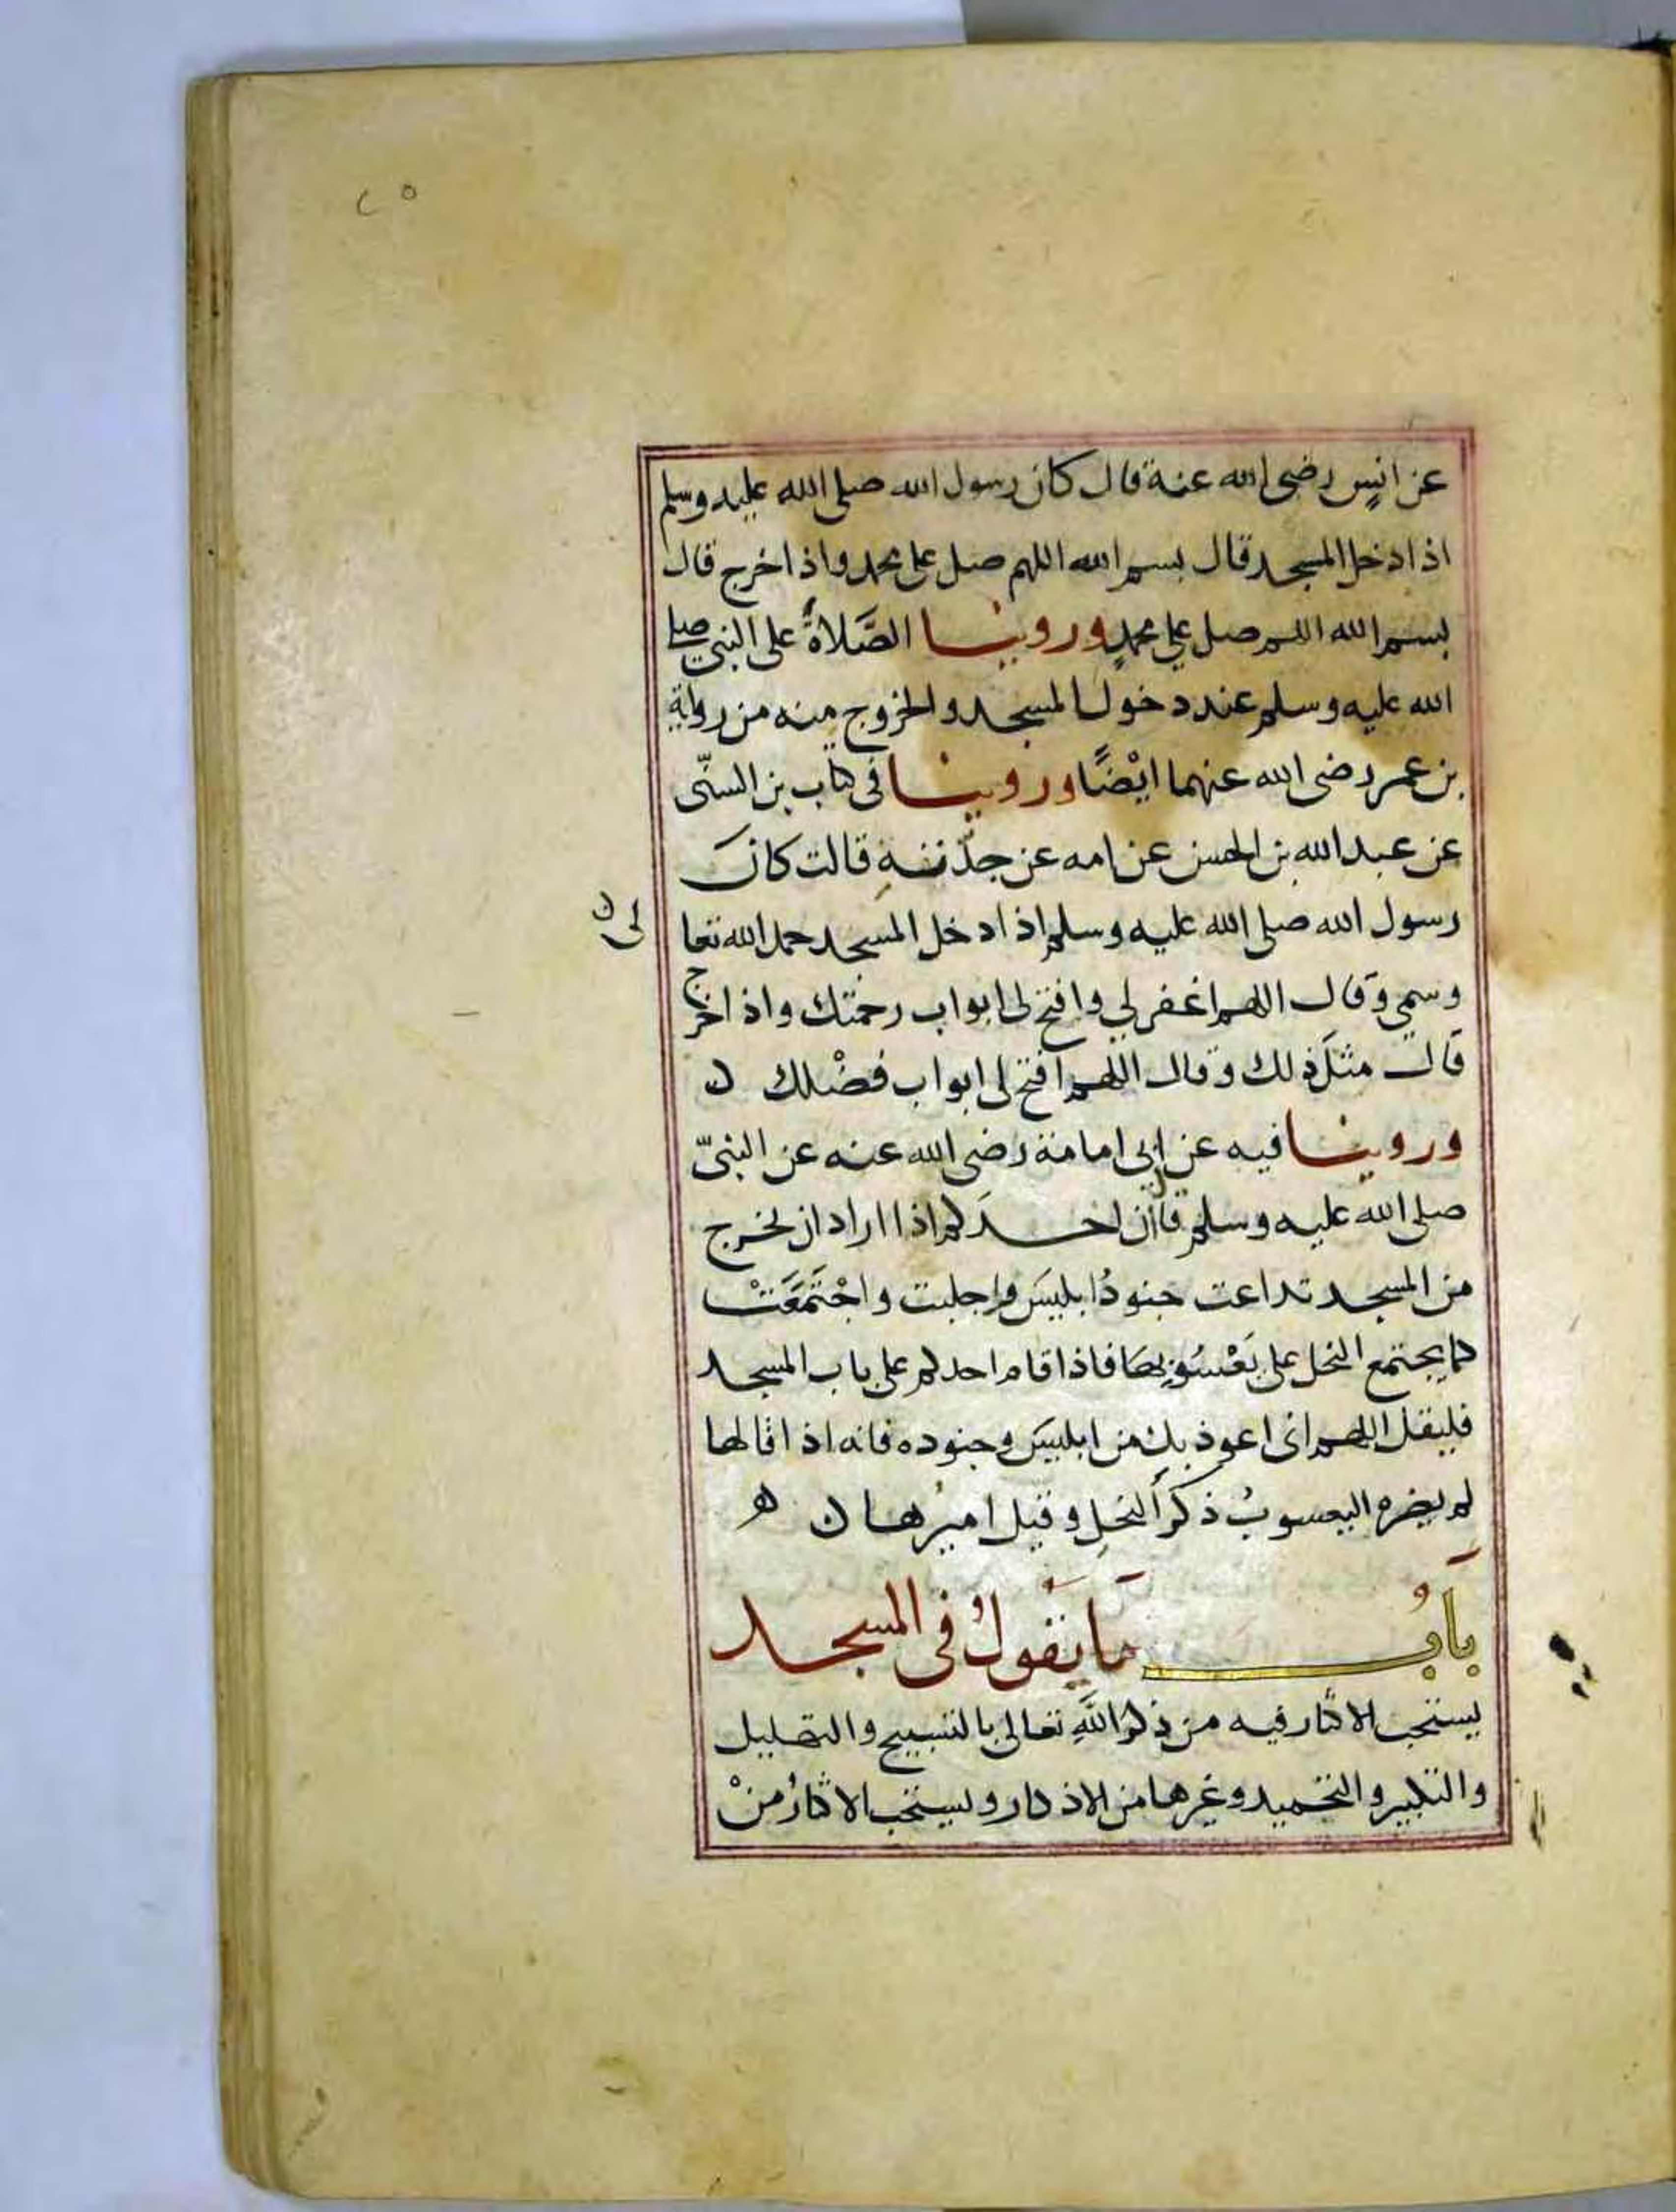 ٢٥
عن انسٍ رضي الله عنة قال كان رسول الله صلى الله عليه وسلم
اذا دخل المسجد قال بسم الله اللهم صل على محمد واذا خرج قال
بسم الله اللهم صل على محمدٍ وروينا الصَّلاةُ على النبي صلى
الله عليه وسلم عند دخول المسجد والخروج منه من رواية
بن عمر رضي الله عنهما ايْضًا وروينا في كتاب بن السنّى
عن عبد الله بن الحسن عن امه عن جدّتهِ قالت كانَ
رسول الله صلى الله عليه وسلم اذا دخل المسجد حمد الله تعا
لى
وسمي وقال اللهم اغفر لي وافتح لى ابواب رحمتك واذا خرج
قال مثلَ ذلك وقال اللهم افتح لى ابواب فضْلك ن
وروينا فيه عن ابى امامة رضي الله عنه عن النبىّ
صلى الله عليه وسلم قال ان احدَكم اذا اراد ان يخرج
من المسجد تداعت جنودُ ابليسَ واجلبت واجْتَمَعَتْ
كما يجتمع النحل على يَعْسُوبِها فاذا قام احدكم على باب المسجد
فليقل اللهم انى اعوذ بك من ابليسَ وجنوده فانه اذا قالها
لم يضره اليعسوبُ ذكرُ النحلِ وقيل اميرُها ن ه
بَابُ مَا يَقُولُ فى المسجد
يستحب الاكثار فيه من ذكر اللَّهِ تعالى بالتسبيح والتهليل
والتكبير والتحميد وغيرها من الاذكار ويستحب الاكثارُ منْ